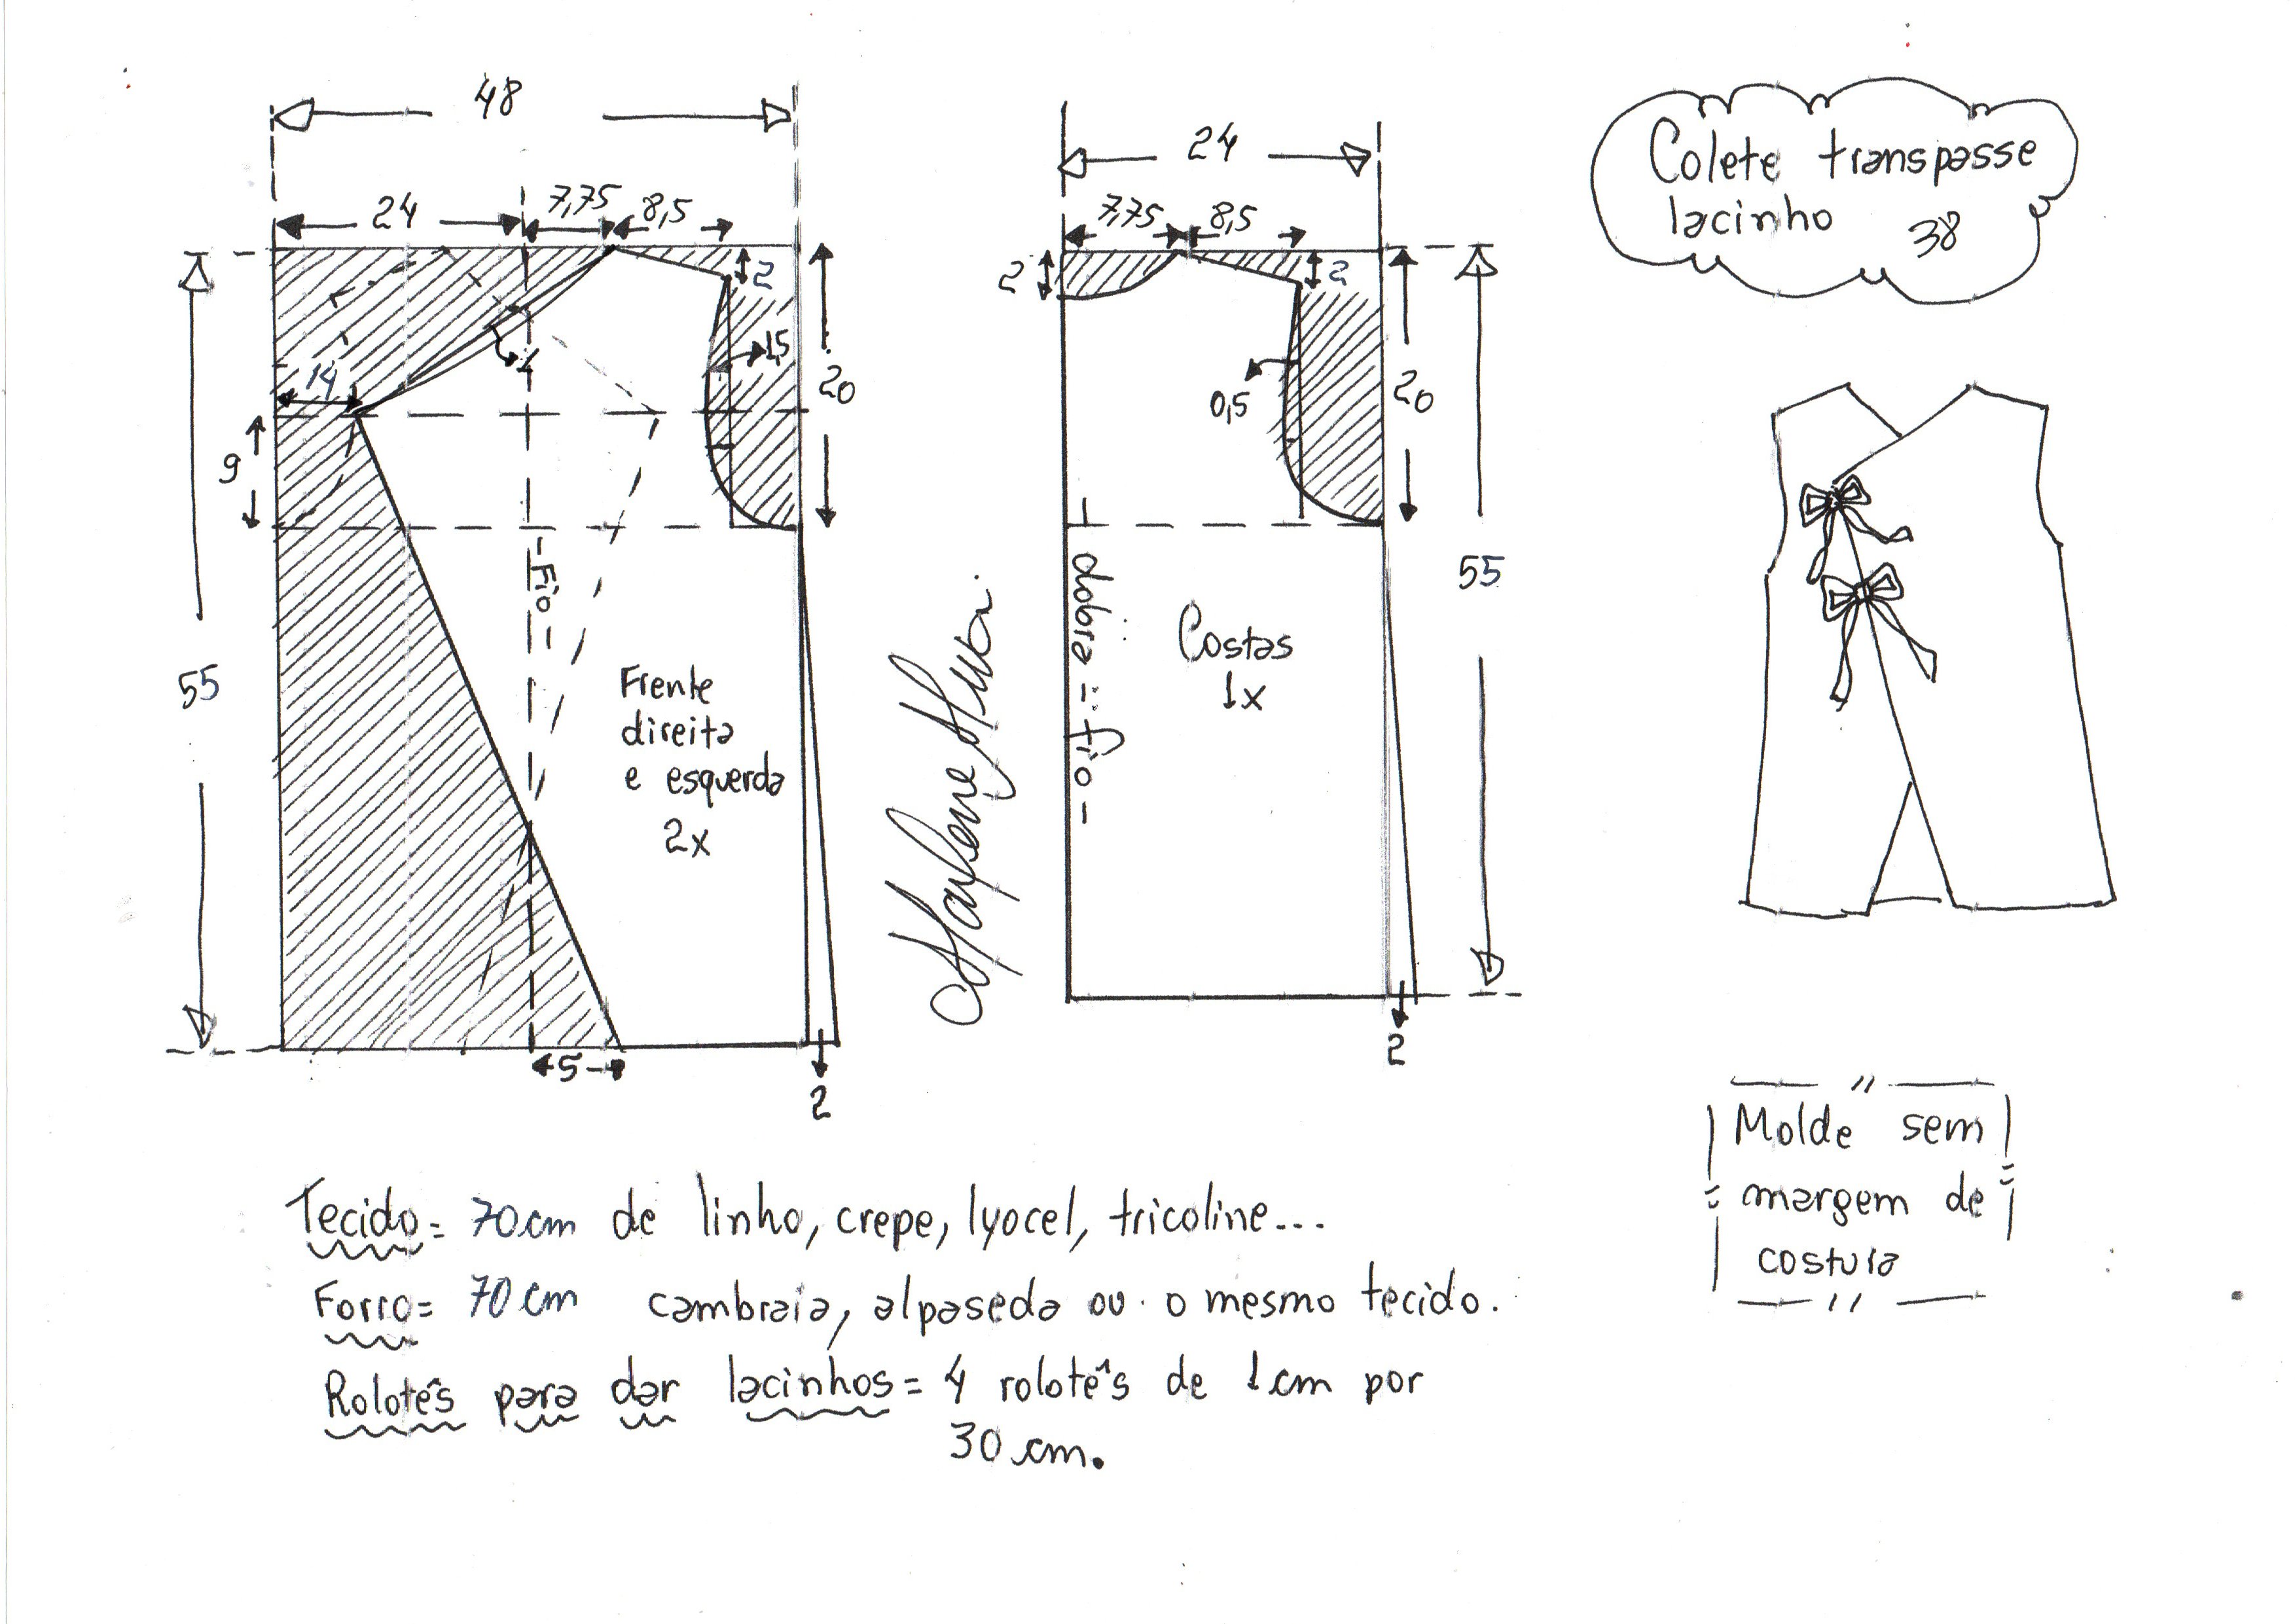 48
24
7,75
8,5
2
1,5
20
14
1
9
55
- Fio -
Frente
direita
e esquerda
2x
5
2
24
7,75
8,5
2
2
0,5
20
55
dobra = fio -
Costas
1x
2
Colete transpasse
lacinho 38
Molde sem
margem de
costura
Tecido = 70cm de linho, crepe, lyocel, tricoline...
Forro = 70 cm cambraia, alpaseda ou o mesmo tecido.
Rolotês para dar lacinhos = 4 rolotês de 1 cm por
30 cm.